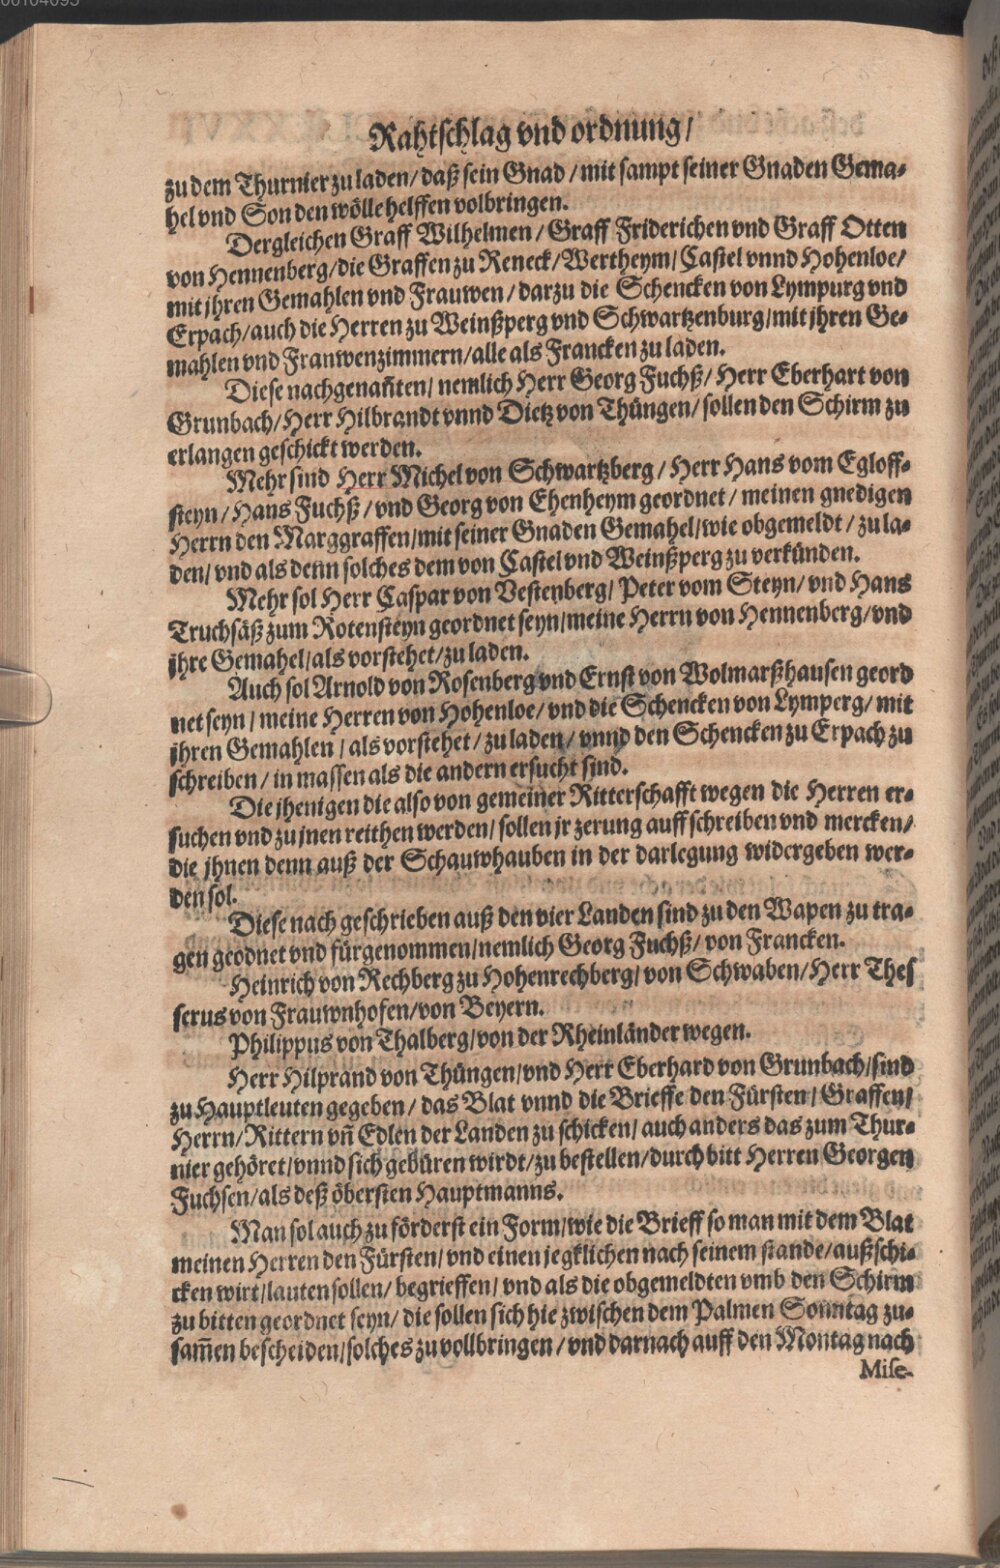 Rahtschlag vnd ordnung/
zu dem Thurnier zu laden/ daß sein Gnad / mit sampt seiner Gnaden Gema-
hel vnd Son den wölle helffen volbringen.
Dergleichen Graff Wilhelmen / Graff Friderichen vnd Graff Otten
von Hennenberg/die Graffen zu Reneck/Wertheym/Castel vnnd Hohenloe/
mit jhren Gemahlen vnd Frauwen / darzu die Schencken von Lympurg vnd
Erpach/auch die Herren zu Weinßperg vnd Schwartzenburg/mit jhren Ge-
mahlen vnd Frauwenzimmern/alle als Francken zu laden.
Diese nachgenañten/ nemlich Herr Georg Fuchß/ Herr Eberhart von
Grunbach/Herr Hilbrandt vnnd Dietz von Thüngen/ sollen den Schirm zu
erlangen geschickt werden.
Mehr sind Herr Michel von Schwartzberg / Herr Hans vom Egloff-
steyn/ Hans Fuchß / vnd Georg von Ehenheym geordnet / meinen gnedigen
Herrn den Marggraffen/mit seiner Gnaden Gemahel/wie obgemeldt / zu la-
den/ vnd als denn solches dem von Castel vnd Weinßperg zu verkünden.
Mehr sol Herr Caspar von Vestenberg/ Peter vom Steyn/ vnd Hans
Truchsäß zum Rotensteyn geordnet seyn/meine Herrn von Hennenberg/vnd
jhre Gemahel/als vorstehet/zu laden.
Auch sol Arnold von Rosenberg vnd Ernst von Wolmarßhausen geord
net seyn / meine Herren von Hohenloe/ vnd die Schencken von Lymperg/ mit
jhren Gemahlen / als vorstehet / zu laden / vnnd den Schencken zu Erpach zu
schreiben / in massen als die andern ersucht sind.
Die jhenigen die also von gemeiner Ritterschafft wegen die Herren er-
suchen vnd zu jnen reithen werden/ sollen jr zerung auff schreiben vnd mercken/
die jhnen denn auß der Schauwhauben in der darlegung widergeben wer-
den sol.
Diese nach geschrieben auß den vier Landen sind zu den Wapen zu tra-
gen geodnet vnd fürgenommen/nemlich Georg Fuchß/ von Francken.
Heinrich von Rechberg zu Hohenrechberg/ von Schwaben/Herr Thes
serus von Frauwnhofen/von Beyern.
Philippus von Thalberg/von der Rheinländer wegen.
Herr Hilprand von Thüngen/vnd Herr Eberhard von Grunbach/sind
zu Hauptleuten gegeben / das Blat vnnd die Brieffe den Fürsten/ Graffen/
Herrn/Rittern vñ Edlen der Landen zu schicken/ auch anders das zum Thur-
nier gehöret/vnnd sich gebüren wirdt/zu bestellen/durch bitt Herren Georgen
Fuchsen/als deß öbersten Hauptmanns.
Man sol auch zu förderst ein Form/wie die Brieff so man mit dem Blat
meinen Herren den Fürsten/ vnd einen jegklichen nach seinem stande/außschi-
cken wirt/lauten sollen/ begrieffen/ vnd als die obgemeldten vmb den Schirm
zu bitten geordnet seyn/ die sollen sich hie zwischen dem Palmen Sonntag zu-
sam̄en bescheiden/solches zu vollbringen / vnd darnach auff den Montag nach
Mise-